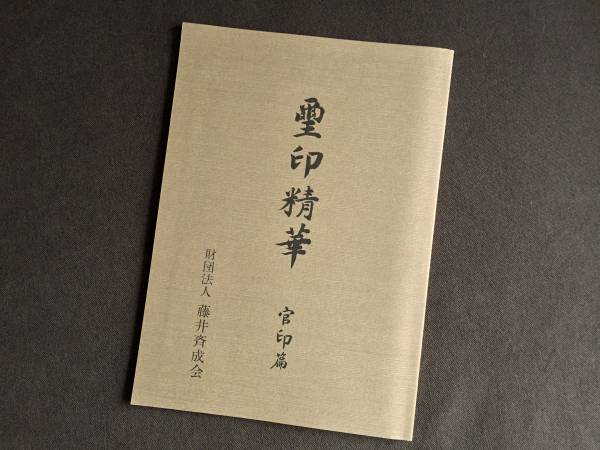 璽印精華
官印篇
財団法人 藤井斉成会